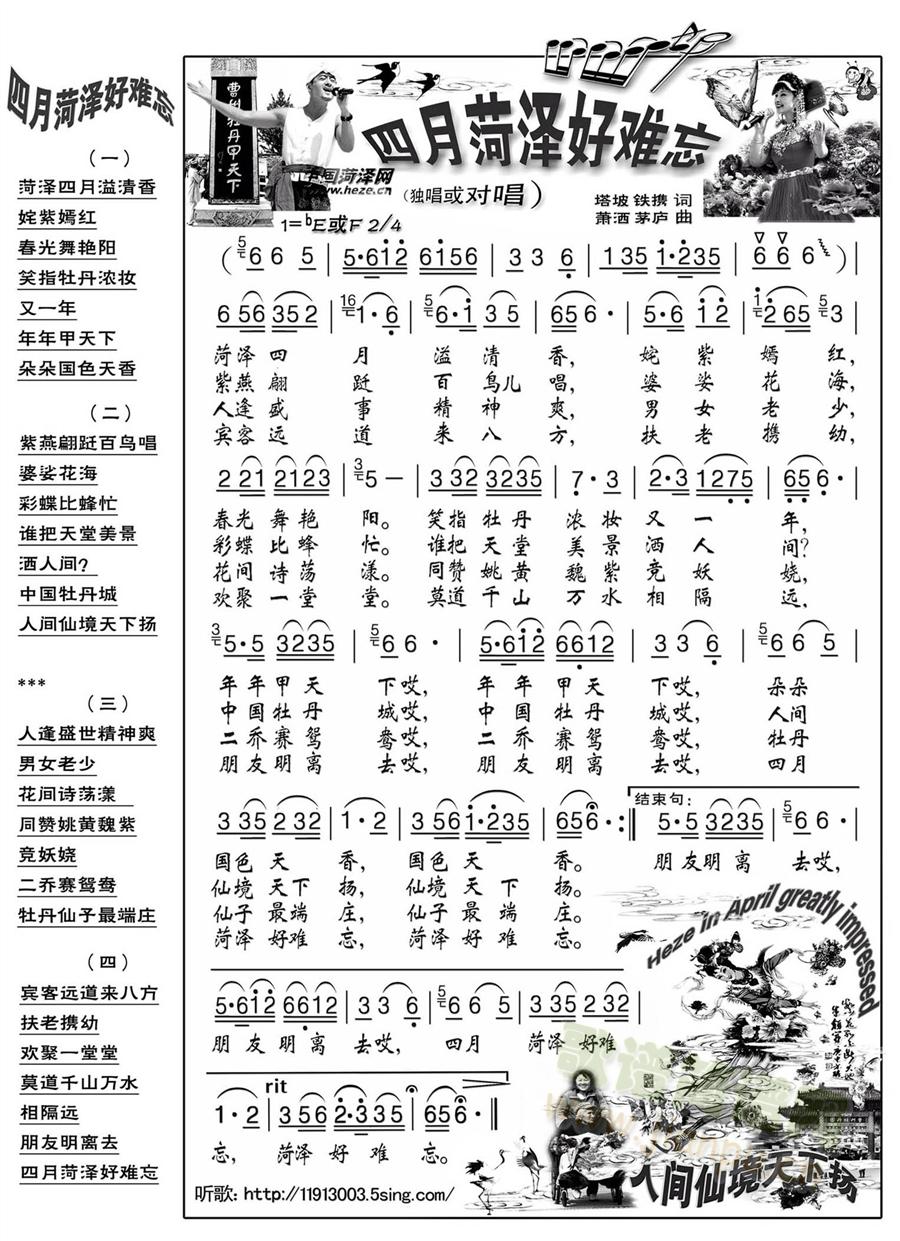 四月菏泽好难忘
（一）
菏泽四月溢清香
姹紫嫣红
春光舞艳阳
笑指牡丹浓妆
又一年
年年甲天下
朵朵国色天香
（二）
紫燕翩跹百鸟唱
婆娑花海
彩蝶比蜂忙
谁把天堂美景
洒人间？
中国牡丹城
人间仙境天下扬
***
（三）
人逢盛世精神爽
男女老少
花间诗荡漾
同赞姚黄魏紫
竞妖娆
二乔赛鸳鸯
牡丹仙子最端庄
（四）
宾客远道来八方
扶老携幼
欢聚一堂堂
莫道千山万水
相隔远
朋友明离去
四月菏泽好难忘
曹州牡丹甲天下
四月菏泽好难忘
中国菏泽网
www.heze.cn
（独唱或对唱）
1=bE或F 2/4
塔坡 铁携 词
萧洒 茅庐 曲
（5 6 6 5 | 5·612 6156 | 3 3 6 | 135 1·235 | 6 6 6 ）|
6 56 352 | 16 1·6 | 5 6·1 3 5 | 656· | 5·6 12 | 1 2·65 5 3 |
菏泽四 月 溢清香， 姹紫嫣红，
紫燕翩 跹 百鸟儿唱， 婆娑花海，
人逢盛 事 精神爽， 男女老少，
宾客远 道 来八方， 扶老携幼，
2 21 2123 | 3 5 — | 3 32 3235 | 7·3 | 2·3 1275 | 656· |
春光舞艳 阳。 笑指牡丹 浓妆又一 年，
彩蝶比蜂 忙。 谁把天堂 美景洒人 间？
花间诗荡 漾。 同赞姚黄 魏紫竞妖 娆，
欢聚一堂 堂。 莫道千山 万水相隔 远，
3 5·5 3235 | 5 6 6 · | 5·612 6612 | 3 3 6 | 5 6 6 5 |
年年甲天 下哎， 年年甲天 下哎， 朵朵
中国牡丹 城哎， 中国牡丹 城哎， 人间
二乔赛鸳 鸯哎， 二乔赛鸳 鸯哎， 牡丹
朋友明离 去哎， 朋友明离 去哎， 四月
结束句：
3 35 2 32 | 1·2 | 3 56 1·235 | 656· :‖ 5·5 3235 | 5 6 6 · |
国色天 香， 国色天 香。 朋友明离 去哎，
仙境天下 扬， 仙境天下 扬。
仙子最端 庄， 仙子最端 庄。
菏泽好难 忘， 菏泽好难 忘。
Heze in April greatly impressed
5·612 6612 | 3 3 6 | 5 6 6 5 | 3 35 2 32 |
朋友明离 去哎， 四月 菏泽好难
rit
1·2 | 3 56 2·335 | 656· ‖
忘， 菏泽好难 忘。
人间仙境天下扬
听歌: http://11913003.5sing.com/